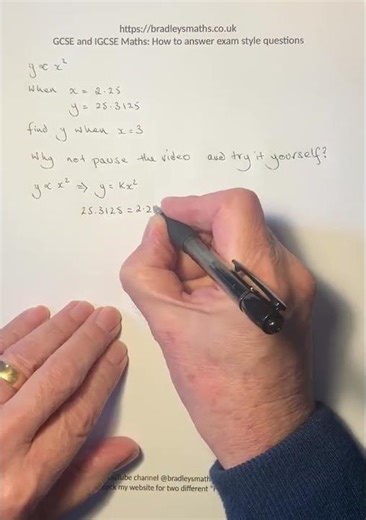 https://bradleysmaths.co.uk
GCSE and IGCSE Maths: How to answer exam style questions
y ∝ x²
When x = 2.25
y = 25.3125
find y when x = 3
Why not pause the video and try it yourself?
y ∝ x² ⇒ y = kx²
25.3125 = 2.2
YouTube channel @bradleysmath
my website for two different